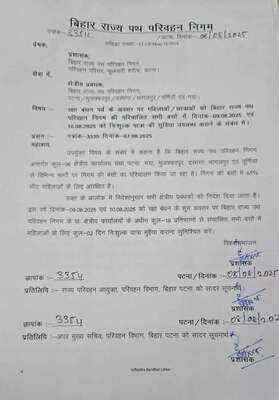 बिहार राज्य पथ परिवहन निगम
पत्रांक- 3354 /पटना, दिनांक- 08/08/2025
प्रेषक,
प्रशासक,
बिहार राज्य पथ परिवहन निगम,
परिवहन परिसर, फुलवारी शरीफ, पटना।
सेवा में,
क्षेत्रीय प्रबंधक,
बिहार राज्य पथ परिवहन निगम,
पटना/मुजफ्फरपुर/दरभंगा/भागलपुर/पूर्णियाँ एवं गया।
विषय :- रक्षा बंधन पर्व के अवसर पर महिलाओं/छात्राओं को बिहार राज्य पथ परिवहन निगम की परिचालित सभी बसों में दिनांक-09.08.2025 एवं 10.08.2025 को निःशुल्क यात्रा की सुविधा उपलब्ध कराने के संबंध में।
प्रसंग :- पत्रांक-3339 दिनांक-07.08.2025
महाशय,
उपर्युक्त विषय के संबंध में कहना है कि बिहार राज्य पथ परिवहन निगम
अन्तर्गत कुल-06 क्षेत्रीय कार्यालय यथा पटना, गया, मुजफ्फरपुर, दरभंगा, भागलपुर एवं पूर्णियाँ
से विभिन्न मार्गों पर निगम की बसों का परिचालन किया जा रहा है। निगम की बसों में 65%
सीट महिलाओं के लिए आरक्षित है।
उक्त के आलोक में निदेशानुसार सभी क्षेत्रीय प्रबंधकों को निदेश दिया जाता है।
इस वर्ष दिनांक-09.08.2025 एवं 10.08.2025 को रक्षा बंधन के शुभ अवसर पर बिहार राज्य पथ
परिवहन निगम के छः क्षेत्रीय कार्यालयों के अधीन कुल-18 प्रतिष्ठानों से संचालित सभी बसों में
महिलाओं के लिए कुल-02 दिन निःशुल्क यात्रा मुहैया कराना सुनिश्चित करें।
विश्वासभाजन
प्रशासक
ज्ञापांक :- 3354 पटना/दिनांक -08/08/2025
प्रतिलिपि :- राज्य परिवहन आयुक्त, परिवहन विभाग, बिहार पटना को सादर सूचनार्थ।
प्रशासक
ज्ञापांक :- 3354 पटना/दिनांक -08/08/2025
प्रतिलिपि :- अपर मुख्य सचिव, परिवहन विभाग, बिहार पटना को सादर सूचनार्थ।
प्रशासक